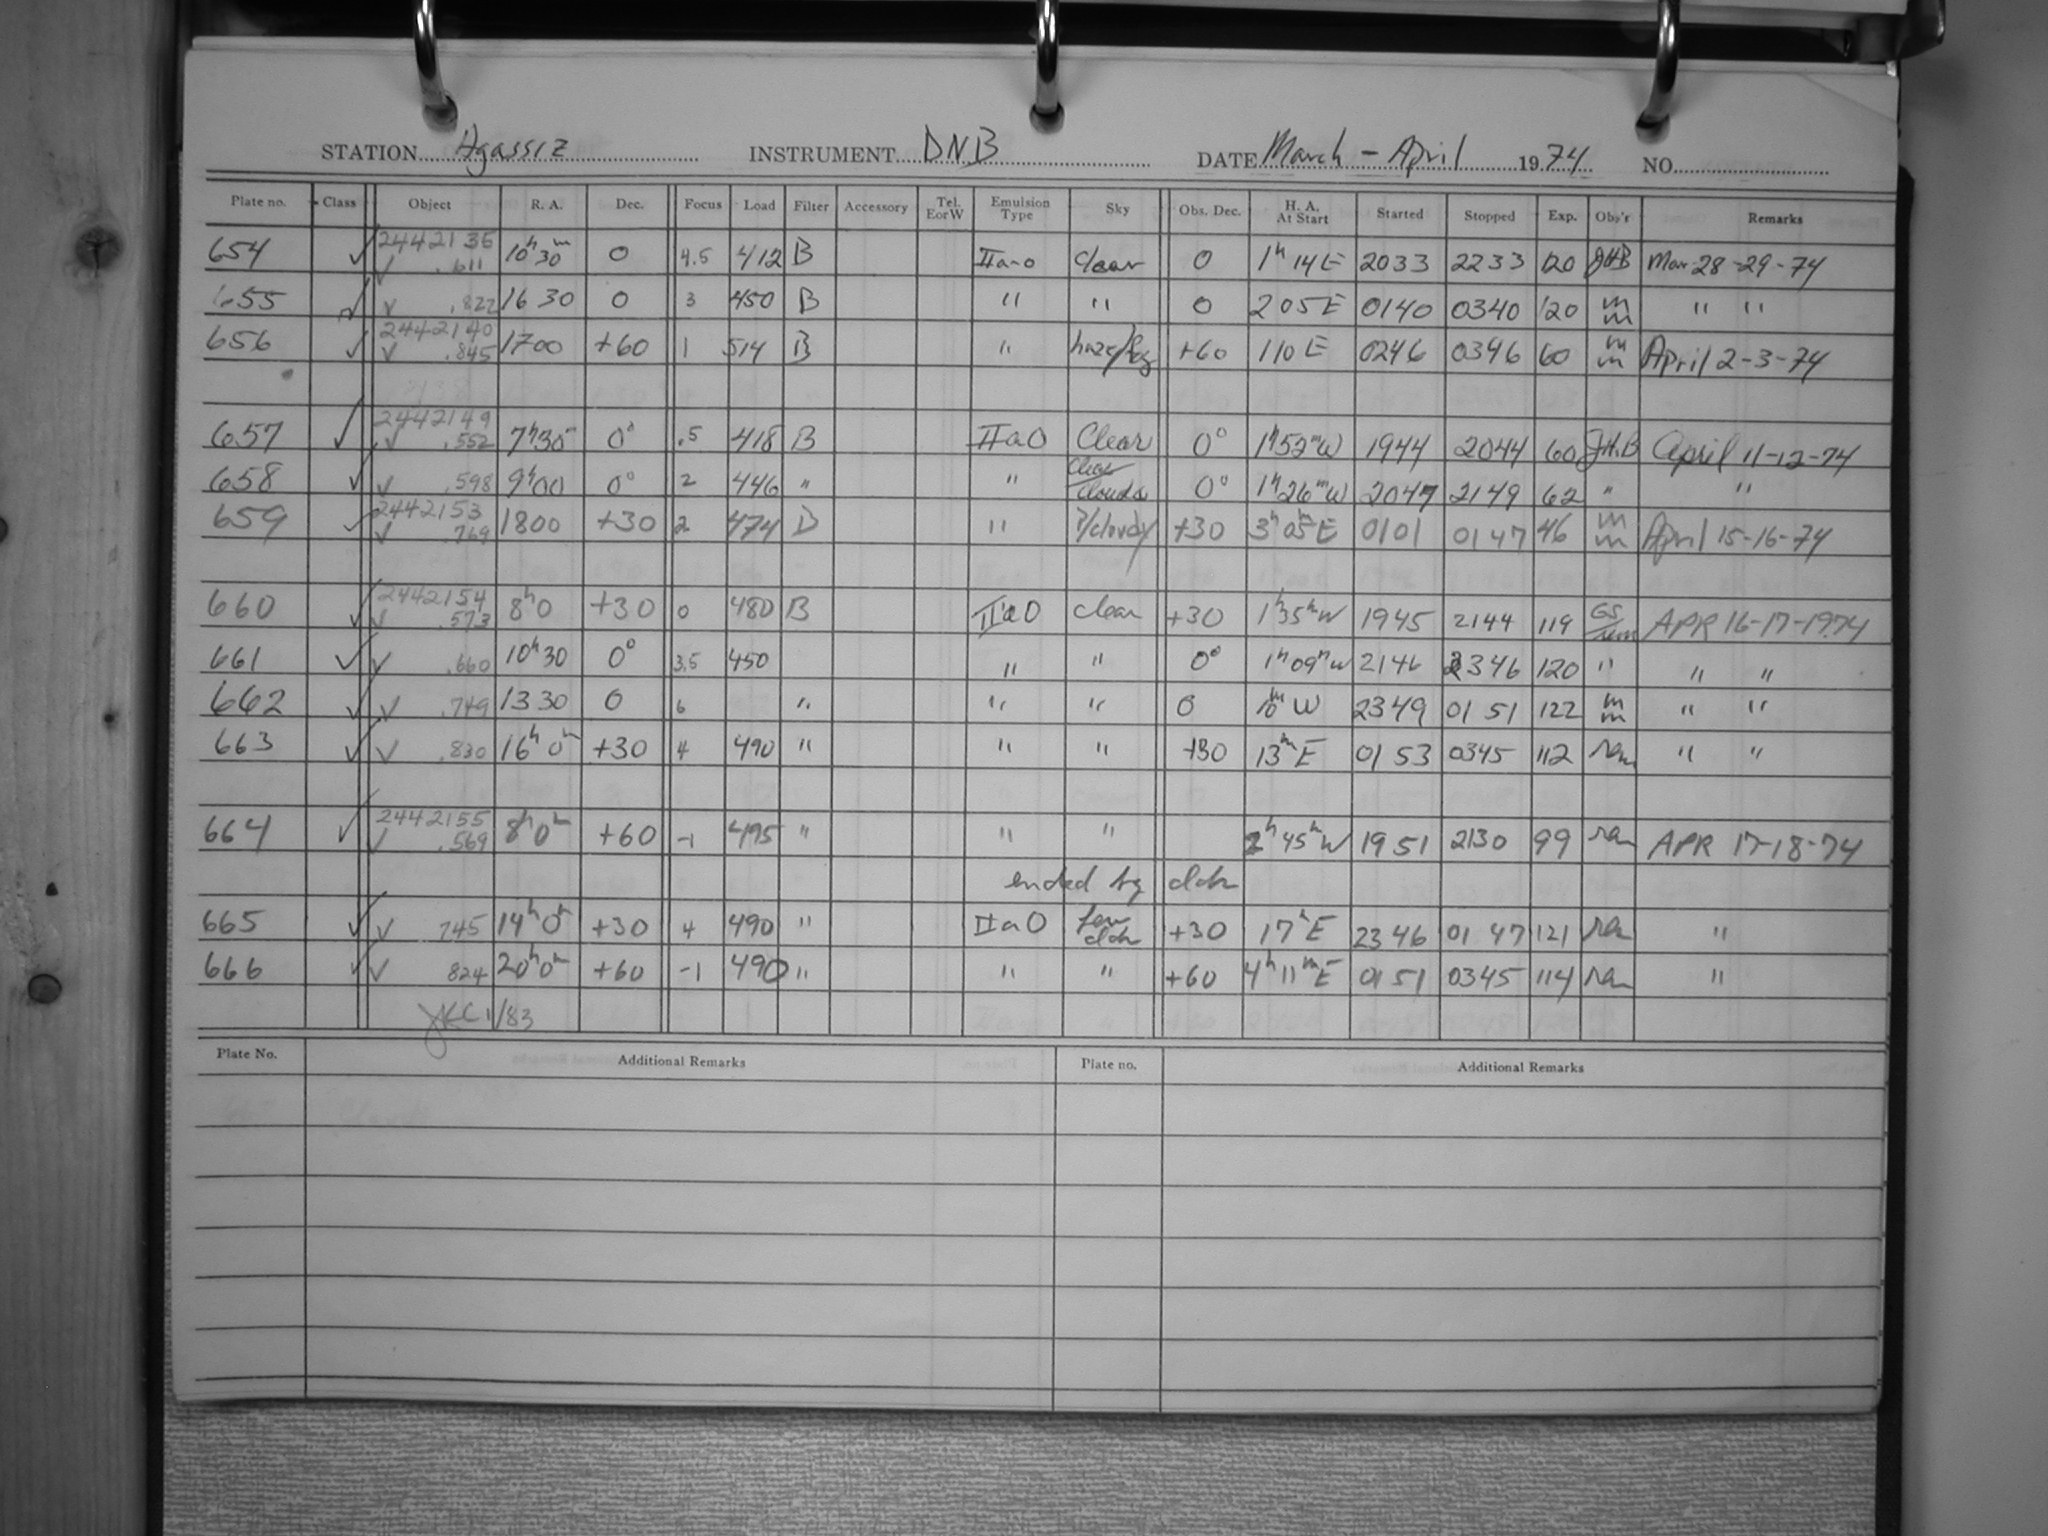 STATION Agassiz INSTRUMENT DNB DATE March - April 1974 NO.
Plate no. Class Object R. A. Dec. Focus Load Filter Accessory Tel. E or W Emulsion Type Sky Obs. Dec. H. A. At Start Started Stopped Exp. Obs'r Remarks
654 ✓ 2442135 ✓ .611 10h 30m 0 4.5 412 B IIa-o clear 0 1h 14 E 2033 2233 120 JHB Mar 28-29-74
655 ✓ ✓ .822 16 30 0 3 450 B " " 0 2 05 E 0140 0340 120 " "
656 ✓ 2442140 ✓ .845 1700 +60 1 514 B " haze/fog +60 110 E 0246 0346 60 April 2-3-74
657 ✓ 2442149 ✓ .552 7h30m 0° .5 418 B IIaO Clear 0° 1h52m W 1944 2044 60 JH.B April 11-12-74
658 ✓ ✓ .598 9h00 0° 2 446 " " Clear/clouds 0° 1h26m W 2047 2149 62 " "
659 ✓ 2442153 ✓ .769 1800 +30 2 474 B " P/cloudy +30 3h 05m E 0101 0147 46 April 15-16-74
660 ✓ 2442154 ✓ .573 8h0 +30 0 480 B IIaO clear +30 1h35m W 1945 2144 119 APR 16-17-1974
661 ✓ ✓ .660 10h30 0° 3.5 450 " " 0° 1h09m W 2146 2346 120 " " "
662 ✓ ✓ .749 13 30 0 6 " " " 0 10m W 2349 0151 122 " "
663 ✓ ✓ .830 16h 0m +30 4 490 " " " +30 13m E 0153 0345 112 ram " "
664 ✓ 2442155 ✓ .569 8h0m +60 -1 495 " " " 2h 45m W 1951 2130 99 ram APR 17-18-74
ended by clds
665 ✓ ✓ 745 14h0m +30 4 490 " IIaO few clds +30 17m E 2346 0147 121 ram "
666 ✓ ✓ 824 20h0m +60 -1 490 " " " +60 4h 11m E 0151 0345 114 ram "
JKC 1/83
Plate No. Additional Remarks Plate no. Additional Remarks